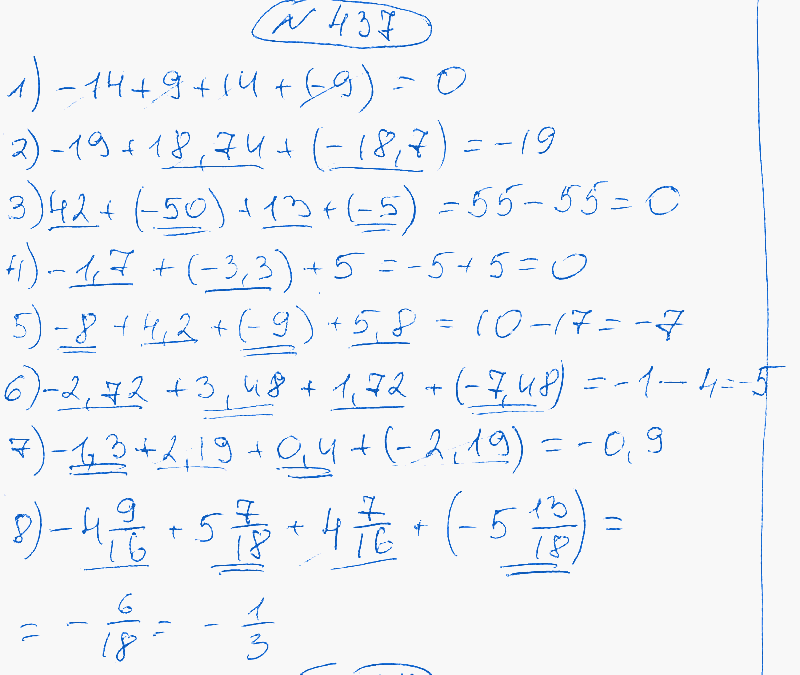 № 437
1) -14 + 9 + 14 + (-9) = 0
2) -19 + 18,74 + (-18,7) = -19
3) 42 + (-50) + 13 + (-5) = 55 - 55 = 0
4) -1,7 + (-3,3) + 5 = -5 + 5 = 0
5) -8 + 4,2 + (-9) + 5,8 = 10 - 17 = -7
6) -2,72 + 3,48 + 1,72 + (-7,48) = -1 - 4 = -5
7) -1,3 + 2,19 + 0,4 + (-2,19) = -0,9
8) -4 9/16 + 5 7/18 + 4 7/16 + (-5 13/18) =
= - 6/18 = - 1/3